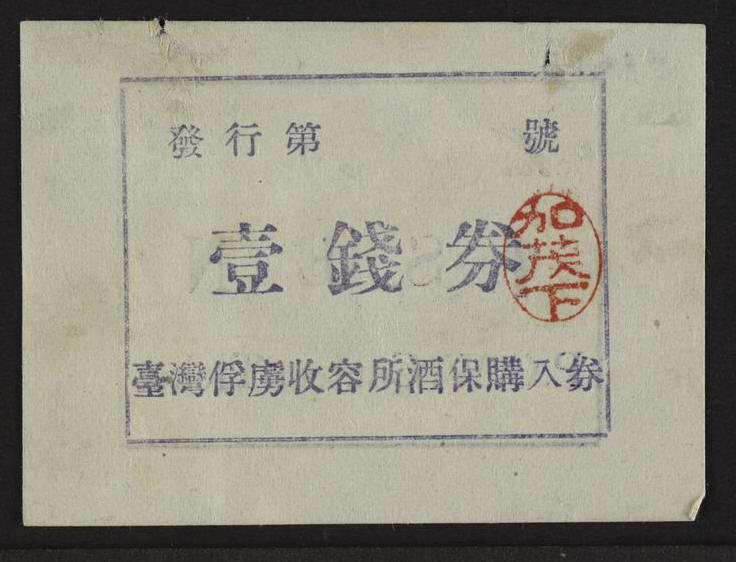 發行第 號
壹錢券
加茂下
臺灣俘虜收容所酒保購入券